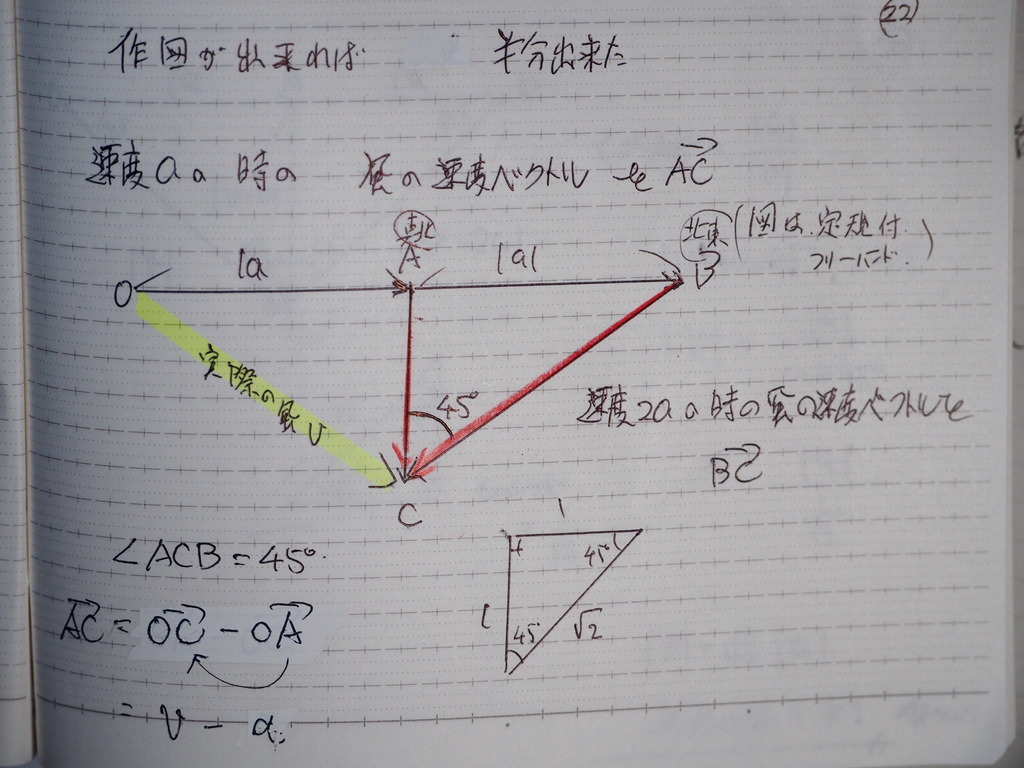 (22)
作図が出来れば 半分出来た
速度aの時の 風の速度ベクトルを AC
北
北東
A
B
(図は、定規付
フリーハンド.)
O
|a
|a|
実際の風v
45°
C
速度2aの時の風の速度ベクトルを
BC
∠ACB=45°.
AC = OC - OA
= v - a
1
45°
1
45
√2